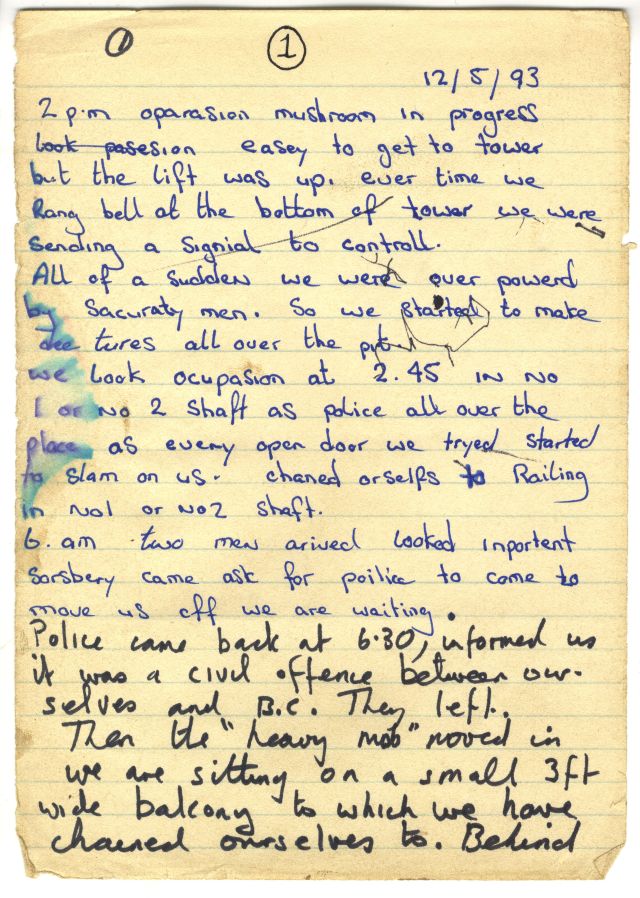 0 1
12/5/93
2 p.m oparasion mushroom in progress
look pasesion easey to get to tower
but the lift was up. ever time we
Rang bell at the bottom of tower we were
sending a signial to controll.
All of a sudden we were over powerd
by Sacuraty men. So we started to make
tures all over the pit
we look ocupasion at 2.45 IN NO
1 or No 2 Shaft as police all over the
place as every open door we tryed started
to slam on us. chaned orselfs to Railing
in No1 or No2 shaft.
6. am two men arived looked inportent
Sorsbery came ask for poilice to come to
move us off we are waiting.
Police came back at 6.30, informed us
it was a civil offence between our-
selves and B.C. They left.
Then the "heavy mob" moved in
we are sitting on a small 3ft
wide balcony to which we have
chained ourselves to. Behind